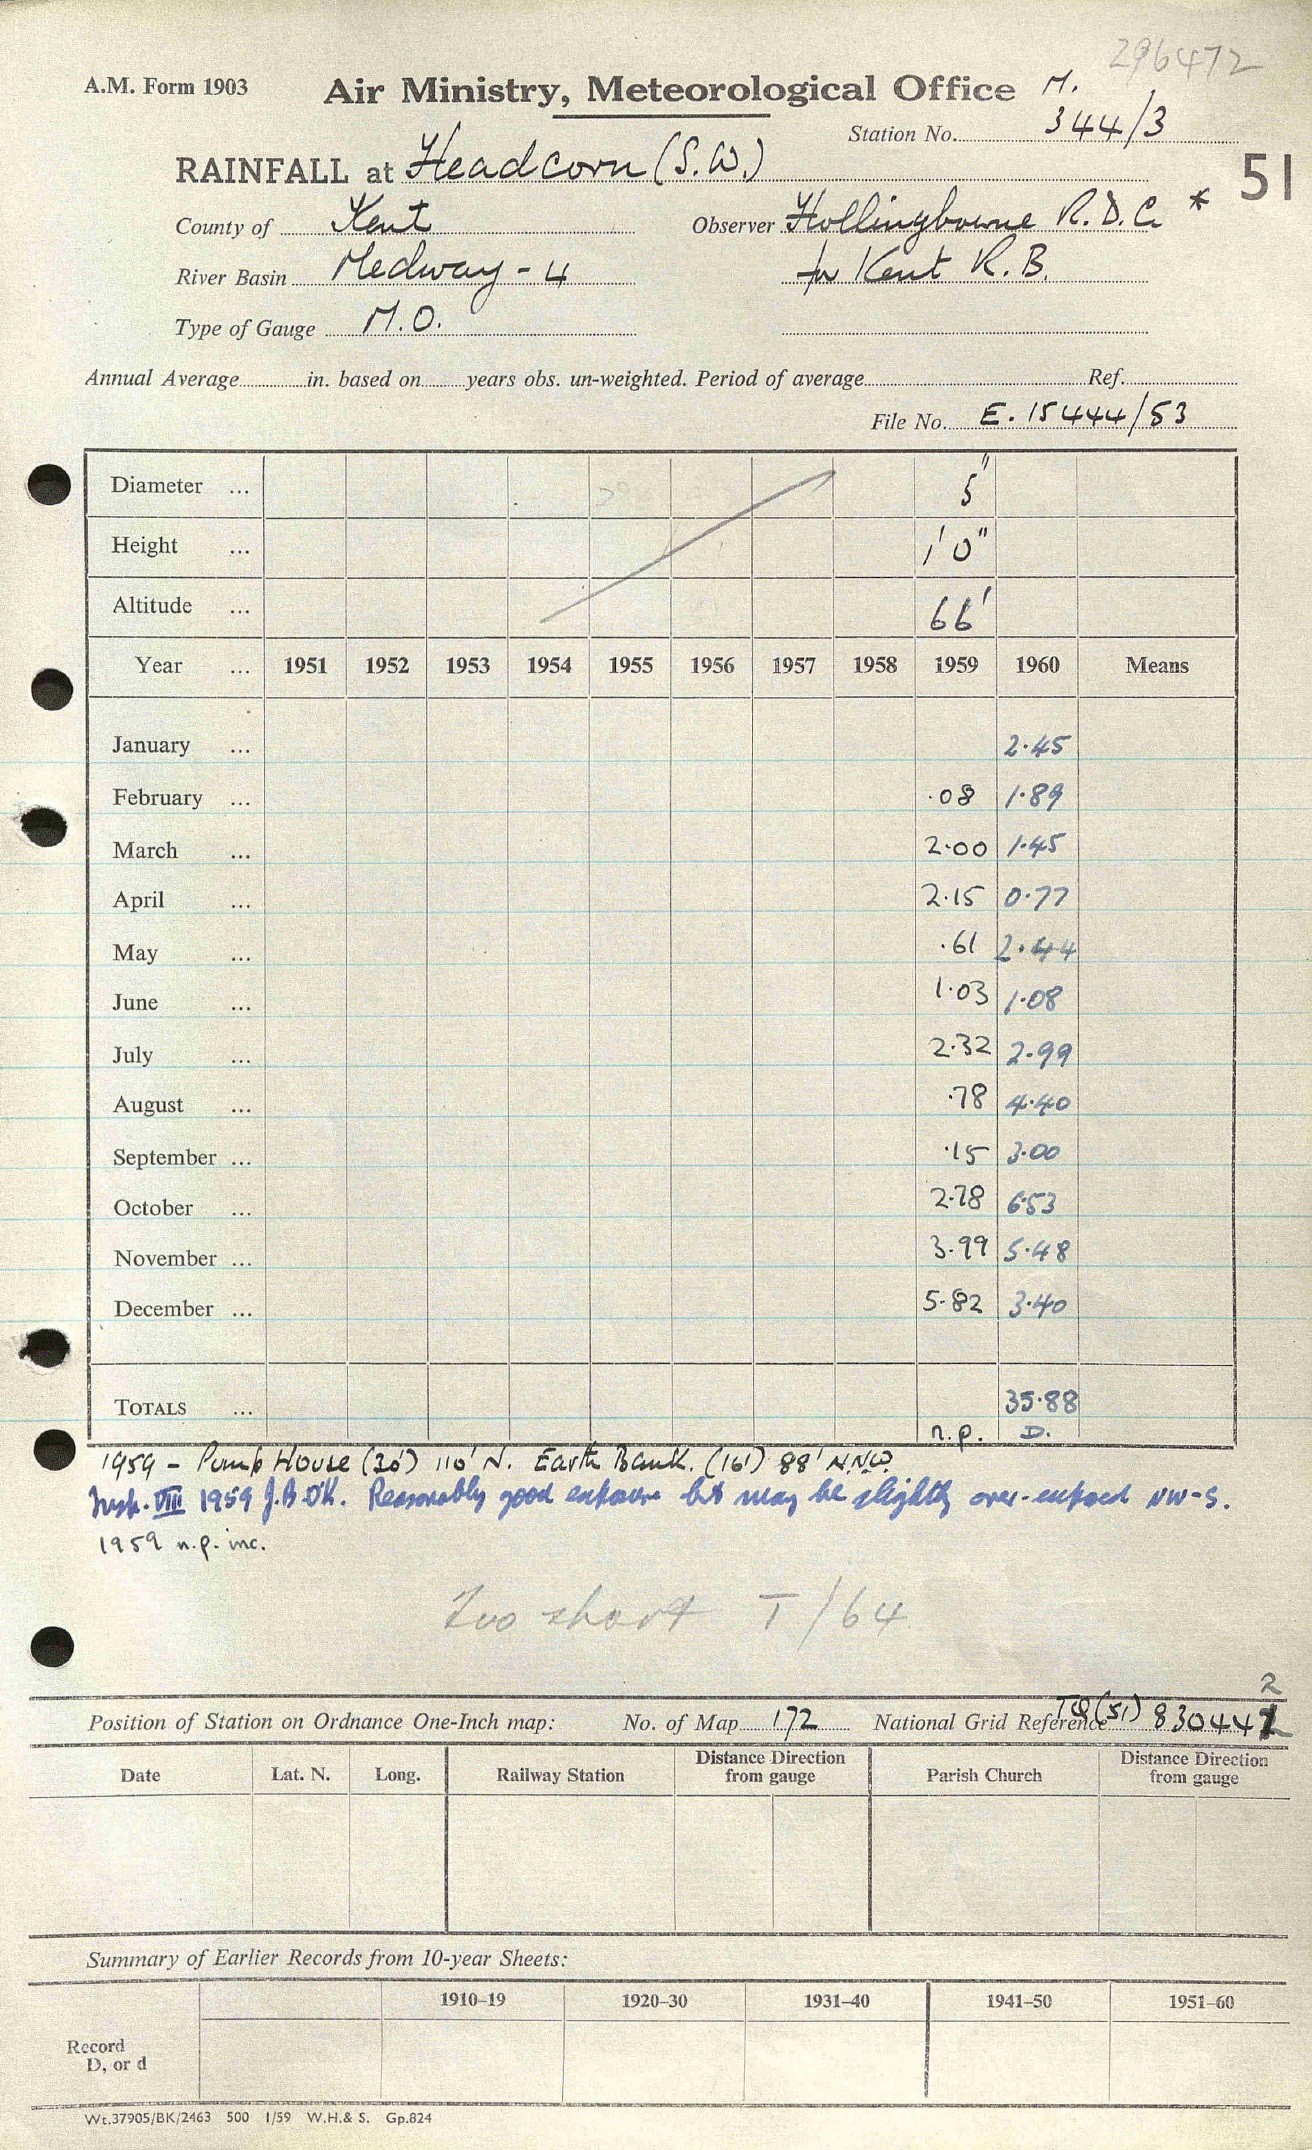 296472
A.M. Form 1903 Air Ministry, Meteorological Office M.
Station No. 344/3
RAINFALL at Headcorn (S.W.) 51
County of Kent Observer Hollingbourne R.D.C. *
River Basin Medway - 4 for Kent R.B.
Type of Gauge M.O.
Annual Average in. based on years obs. un-weighted. Period of average Ref.
File No. E. 15444/53
Diameter ... 5"
Height ... 1'0"
Altitude ... 66'
Year ... 1951 1952 1953 1954 1955 1956 1957 1958 1959 1960 Means
January ... 2.45
February ... .08 1.89
March ... 2.00 1.45
April ... 2.15 0.77
May ... .61 2.44
June ... 1.03 1.08
July ... 2.32 2.99
August ... .78 4.40
September ... .15 3.00
October ... 2.78 6.53
November ... 3.99 5.48
December ... 5.82 3.40
TOTALS ... 35.88
n.p. D.
1959 - Pump House (30') 110' N. Earth Bank. (16') 88' N.N.W.
Insp. VIII 1959 J.B.O'K. Reasonably good exposure but may be slightly over-exposed NW-S.
1959 n.p. inc.
Too short T/64
2
Position of Station on Ordnance One-Inch map: No. of Map 172 National Grid Reference TQ(51) 830441
Date Lat. N. Long. Railway Station Distance Direction from gauge Parish Church Distance Direction from gauge
Summary of Earlier Records from 10-year Sheets:
1910–19 1920–30 1931–40 1941–50 1951–60
Record
D, or d
Wt.37905/BK/2463 500 1/59 W.H.& S. Gp.824